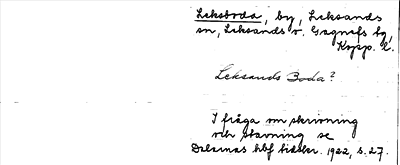 Leksboda, by, Leksands
sn, Leksands o. Gagnefs tg,
Kopp. l.
Leksands Boda?
I fråga om skrivning
och stavning se
Dalarnas hbf tidskr. 1922, s. 27.